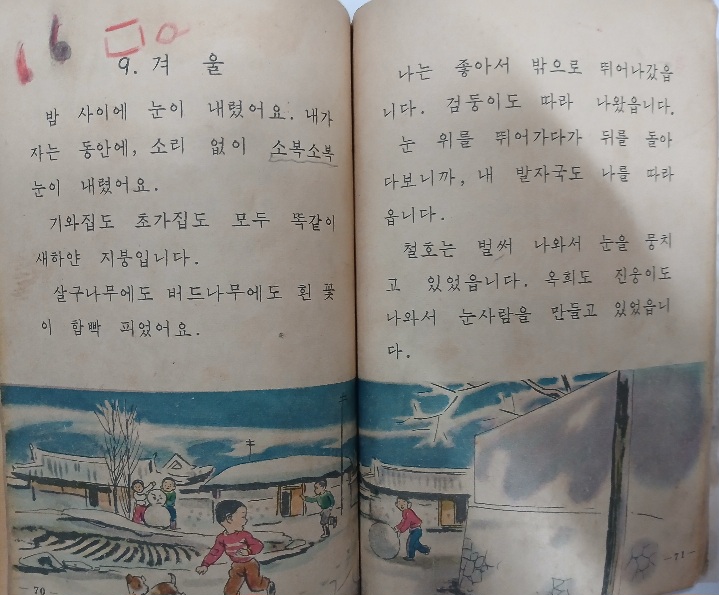 9. 겨 울
밤 사이에 눈이 내렸어요. 내가
자는 동안에, 소리 없이 소복소복
눈이 내렸어요.
기와집도 초가집도 모두 똑같이
새하얀 지붕입니다.
살구나무에도 버드나무에도 흰 꽃
이 함빡 피었어요.
—70—
나는 좋아서 밖으로 뛰어나갔읍
니다. 검둥이도 따라 나왔읍니다.
눈 위를 뛰어가다가 뒤를 돌아
다보니까, 내 발자국도 나를 따라
옵니다.
철호는 벌써 나와서 눈을 뭉치
고 있었읍니다. 옥희도 진웅이도
나와서 눈사람을 만들고 있었읍니
다.
—71—